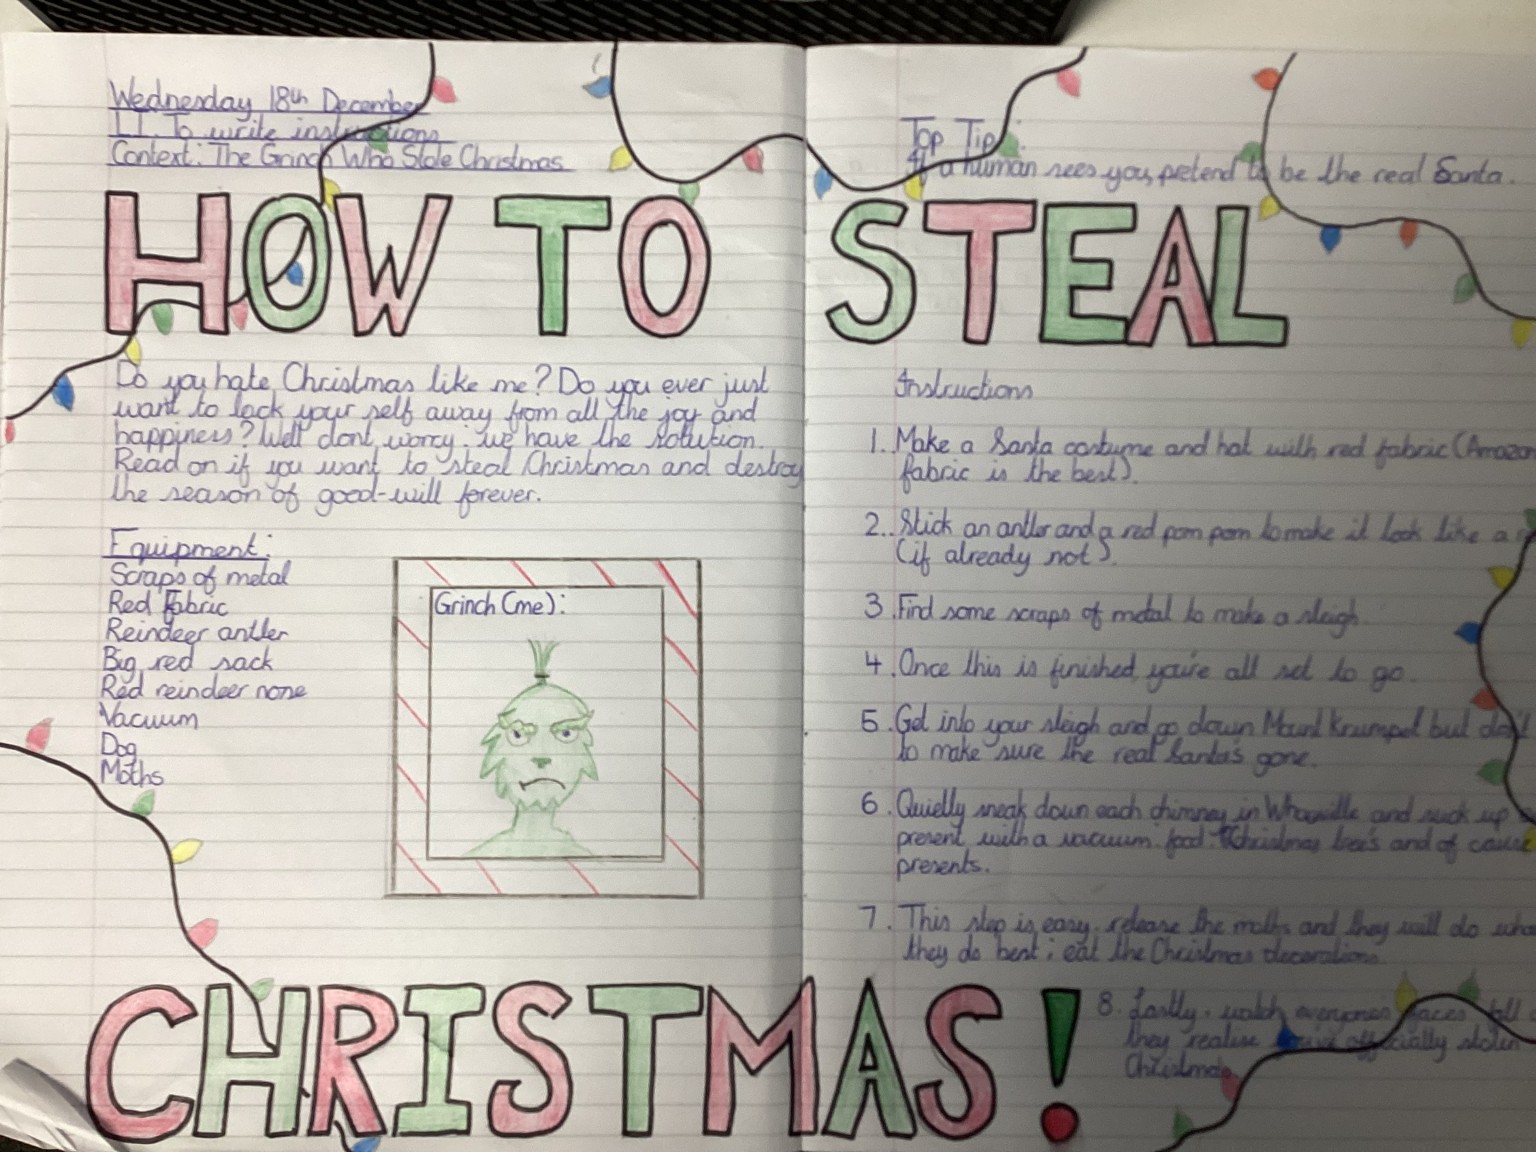 Wednesday 18th December
L.I. To write instructions
Context: The Grinch Who Stole Christmas
HOW TO STEAL
Do you hate Christmas like me? Do you ever just
want to lock your self away from all the joy and
happiness? Well dont worry, we have the solution.
Read on if you want to steal Christmas and destroy
the season of good-will forever.
Equipment:
Scraps of metal
Red Fabric
Reindeer antler
Big red sack
Red reindeer nose
Vacuum
Dog
Moths
Grinch (me):
CHRISTMAS!
Top Tip:
If a human sees you, pretend to be the real Santa.
Instructions
1. Make a Santa costume and hat with red fabric (Amazon
fabric is the best).
2. Stick an antler and a red pom pom to make it look like a
(if already not).
3. Find some scraps of metal to make a sleigh.
4. Once this is finished, you're all set to go.
5. Get into your sleigh and go down Mount Krumpet but don't
to make sure the real Santa's gone.
6. Quietly sneak down each chimney in Whoville and suck up
present with a vacuum. food, Christmas tree's and of cause
presents.
7. This step is easy, release the moths and they will do what
they do best; eat the Christmas decorations.
8. Lastly, watch everyone's faces fall
they realise you've offically stolen
Christmas.